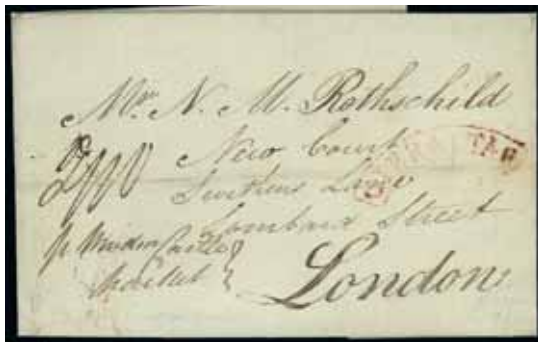 Mr. N. M. Rothschild
New Court
Swithins Lane
Lombard Street
London
p
Packet
GIBRALTAR